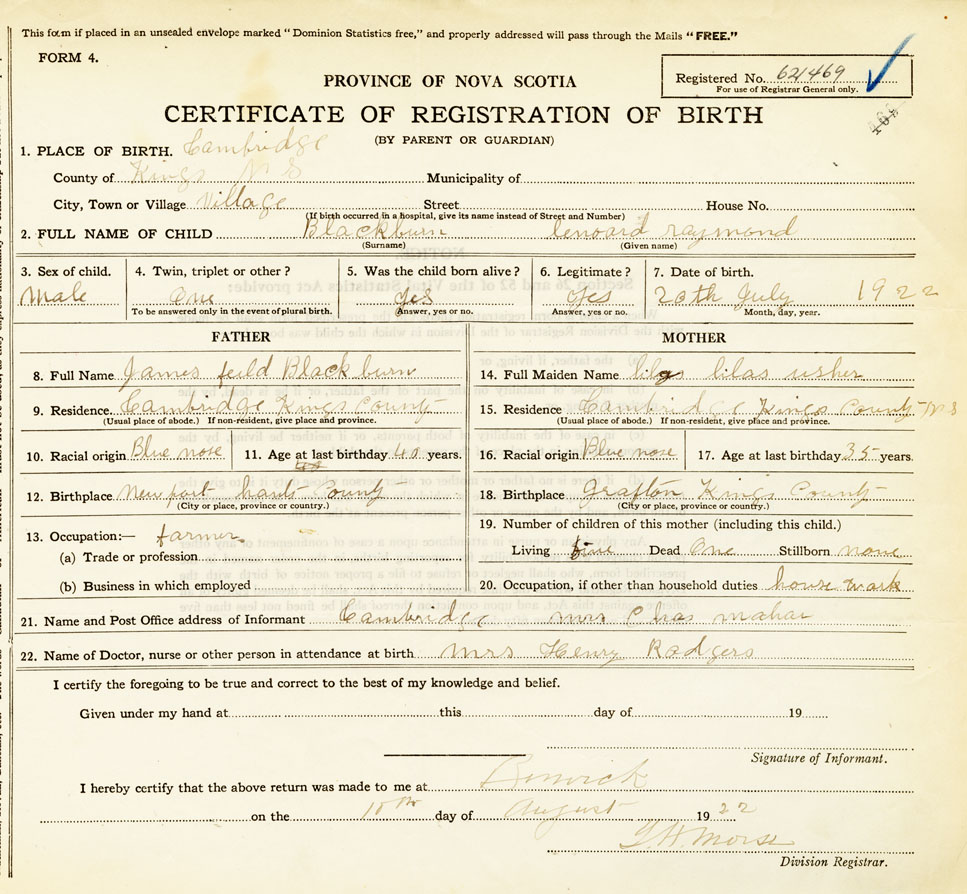 This form if placed in an unsealed envelope marked "Dominion Statistics free," and properly addressed will pass through the Mails "FREE."
FORM 4.
PROVINCE OF NOVA SCOTIA
Registered No. 621469
For use of Registrar General only.
CERTIFICATE OF REGISTRATION OF BIRTH
(BY PARENT OR GUARDIAN)
1. PLACE OF BIRTH. Cambridge
County of Kings N S Municipality of
City, Town or Village Village Street House No.
(If birth occurred in a hospital, give its name instead of Street and Number)
2. FULL NAME OF CHILD Blackburn lenoard raymond
(Surname) (Given name)
3. Sex of child. 4. Twin, triplet or other? 5. Was the child born alive? 6. Legitimate? 7. Date of birth.
Male One yes yes 20th July 1922
To be answered only in the event of plural birth. Answer, yes or no. Answer, yes or no. Month, day, year.
FATHER MOTHER
8. Full Name James feild Blackburn 14. Full Maiden Name lilas usher
9. Residence. Cambridge Kings County 15. Residence Cambridge Kings County N S
(Usual place of abode.) If non-resident, give place and province. (Usual place of abode.) If non-resident, give place and province.
10. Racial origin Blue nose 11. Age at last birthday 40 years. 16. Racial origin Blue nose 17. Age at last birthday 35 years.
12. Birthplace Newport hants County 18. Birthplace Grafton Kings County
(City or place, province or country.) (City or place, province or country.)
13. Occupation:— farmer 19. Number of children of this mother (including this child.)
(a) Trade or profession Living five Dead One Stillborn none
(b) Business in which employed 20. Occupation, if other than household duties house wark
21. Name and Post Office address of Informant Cambridge mrs Chas mahar
22. Name of Doctor, nurse or other person in attendance at birth mrs Henry Rodgers
I certify the foregoing to be true and correct to the best of my knowledge and belief.
Given under my hand at this day of 19
Signature of Informant.
I hereby certify that the above return was made to me at Berwick
on the 10th day of August 1922
Morse
Division Registrar.